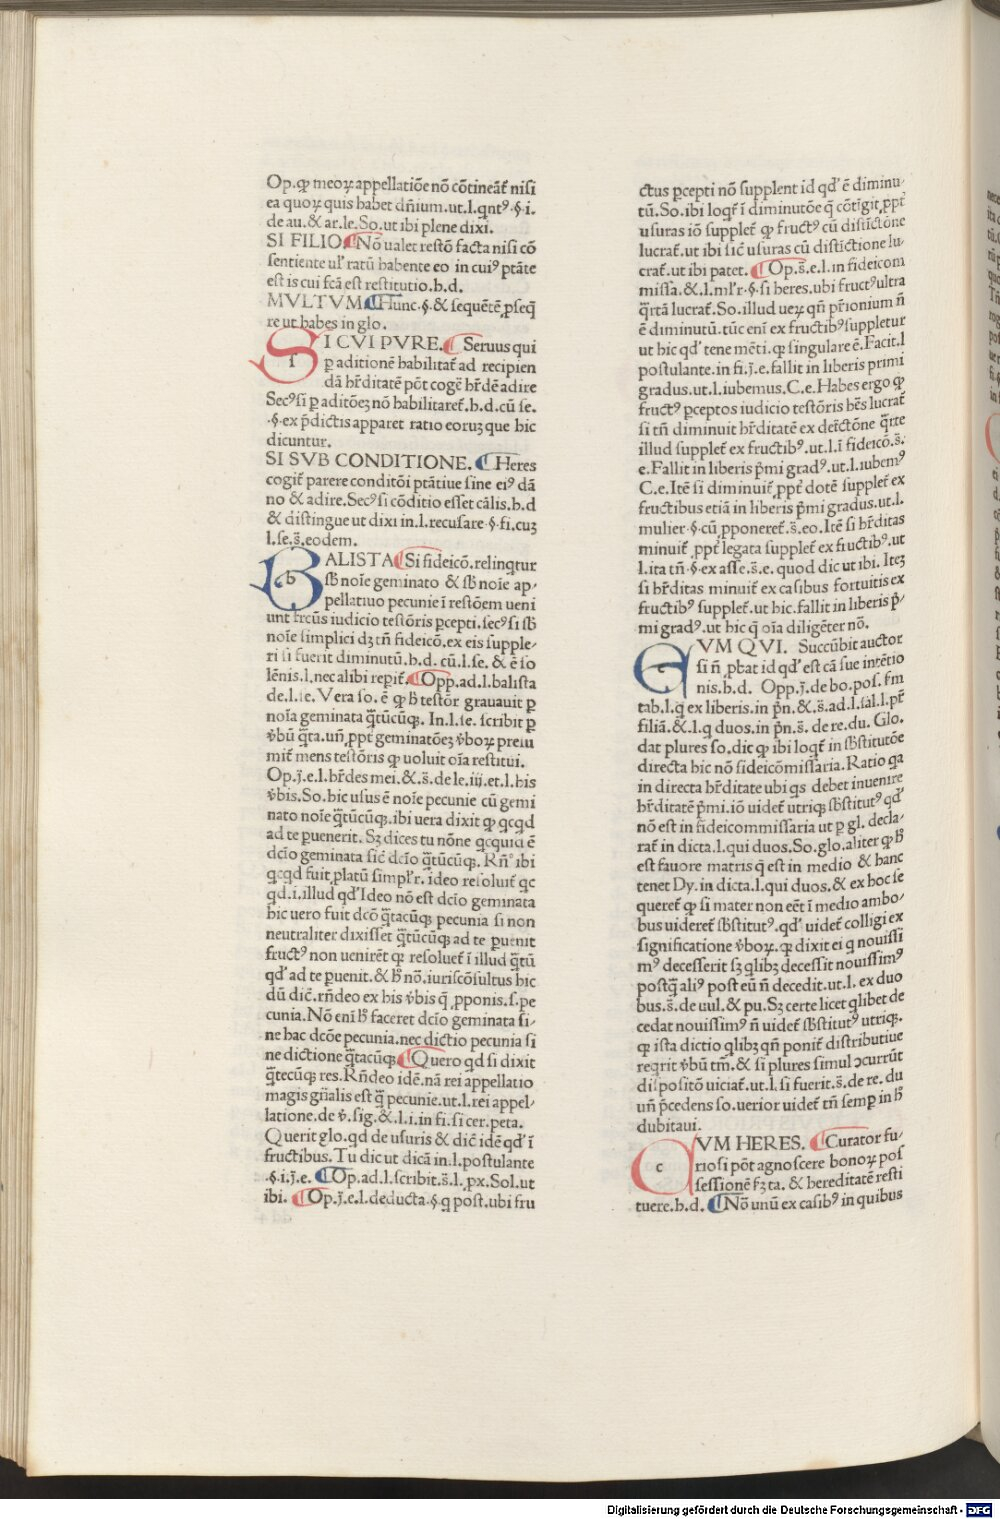 Op. ꝙ meoꝝ appellatiõe nõ cõtineãt᷑ nisi
ea quoꝝ quis habet dñium. ut. l. qntꝰ. §. i.
de au. & ar. le. So. ut ibi plene dixi.
SI FILIO. ¶ Nõ ualet restõ facta nisi cõ
sentiente ul᷑ ratũ habente eo in cuiꝰ ptãte
est is cui fcã est restitutio. h. d.
MVLTVM. ¶ Hunc. §. & sequẽtẽ ꝓseq̃
re ut habes in glo.
SI CVI PVRE. ¶ Seruus qui
ꝑ aditionẽ habilitat᷑ ad recipien
dã hr̃ditatẽ põt cogẽ hr̃dẽ adire
Secꝰ si ꝑ aditõeȝ nõ habilitaret᷑. h. d. cũ se.
·§· ex p̃dictis apparet ratio eoruȝ que hic
dicuntur.
SI SVB CONDITIONE. ¶ Heres
cogit᷑ parere conditõi ptãtiue sine eiꝰ dã
no & adire. Secꝰ si cõditio esset cãlis. h. d
& distingue ut dixi in. l. recusare · §. fi. cuȝ
l. se. s̃. eodem.
BALISTA ¶ Si fideicõ. relinq̃tur
sb̃ noĩe geminato & sb̃ noĩe ap-
pellatiuo pecunie ĩ restõem ueni
unt frcũs iudicio testõris ꝑcepti. secꝰ si sb̃
noĩe simplici dȝ tñ fideicõ. ex eis supple-
ri si fuerit diminutũ. h. d. cũ. l. se. & ẽ so
lẽnis. l. nec alibi reꝑit᷑. ¶ Opp. ad. l. balista
de. l. se. Vera so. ẽ ꝙ h̃ testõr grauauit ꝑ
noĩa geminata q̃tũcũqȝ. In. l. se. scribit ꝑ
v̑bũ q̃ta. uñ ꝓpt᷑ geminatõeȝ v̑boꝝ presu
mit᷑ mens testõris ꝙ uoluit oĩa restitui.
Op. j̃. e. l. hr̃des mei. & .s̃. de le. iij. et. l. his
v̑bis. So. hic usus ẽ noĩe pecunie cũ gemi
nato noĩe q̃tũcũqȝ. ibi uera dixit ꝙ qcqd
ad te ꝑuenerit. Sȝ dices tu nõne qcquid ẽ
dcĩo geminata sic᷑ dcĩo q̃tũcũqȝ. Rñ. ibi
qcqd fuit ꝓlatũ simpl᷑r. ideo resoluit᷑ qc
qd. i. illud qd᷑ Ideo nõ est dcĩo geminata
hic uero fuit dcõ q̃tacũqȝ pecunia si non
neutraliter dixisset q̃tũcũqȝ ad te ꝑuenit
fructꝰ non uenirẽt ꝙ resoluet᷑ ĩ illud q̃tũ
qd᷑ ad te ꝑuenit. & h̃ nõ. iuriscõsultus hic
dũ dic᷑. rñdeo ex his v̑bis q̃ ꝓponis. s. pe
cunia. Nõ enĩ h̃ faceret dcĩo geminata si-
ne hac dcõe pecunia. nec dictio pecunia si
ne dictione q̃tacũqȝ. ¶ Quero qd si dixit
q̃tecũqȝ res. Rñdeo idẽ. nã rei appellatio
magis gñalis est q̃ pecunie. ut. l. rei appel-
latione. de v̑. sig. & .l. i. in fi. si cer. peta.
Querit glo. qd de usuris & dic᷑ idẽ qd᷑ ĩ
fructibus. Tu dic ut dicã in. l. postulante
·§. i. j̃. e. ¶ Op. ad. l. scribit. s̃. l. ꝓx. Sol. ut
ibi. ¶ Op. j̃. e. l. deducta. §. q post. ubi fru
ctus ꝑcepti nõ supplent id qd᷑ ẽ diminu-
tũ. So. ibi loqt᷑ ĩ diminutõe q̃ cõtĩgit ꝓpt᷑
usuras iõ supplet᷑ ꝙ fructꝰ cũ distĩctõne
lucrat᷑. ut ibi sic᷑ usuras cũ distĩctione lu-
crat᷑. ut ibi patet. ¶ Op. s̃. e. l. in fideicom
missa. & .l. ml᷑r. §. si heres. ubi fructꝰ ultra
q̃rtã lucrat᷑. So. illud ueꝝ qñ pr̃ionium ñ
ẽ diminutũ. tũc enĩ ex fructibꝰ suppletur
ut hic qd᷑ tene mẽti. ꝙ singulare ẽ. Facit. l
postulante. in fi. j̃. e. fallit in liberis primi
gradus. ut. l. iubemus. C. e. Habes ergo ꝙ
fructꝰ ꝑceptos iudicio testõris hẽs lucrat᷑
si tñ diminuit hr̃ditatẽ ex detr̃ctõne q̃rte
illud supplet᷑ ex fructibꝰ. ut. l. ĩ fideicõ. s̃.
e. Fallit in liberis p̃mi gradꝰ. ut. l. iubemꝰ
C. e. Itẽ si diminuit᷑ ꝓpt᷑ dotẽ supplet᷑ ex
fructibus etiã in liberis p̃mi gradus. ut. l.
mulier · §. cũ ꝓponeret᷑. s̃. eo. Itẽ si hr̃ditas
minuit᷑ ꝓpt᷑ legata supplet᷑ ex fructibꝰ. ut
l. ita tñ · §. ex asse. s̃. e. quod dic ut ibi. Iteȝ
si hr̃ditas minuit᷑ ex casibus fortuitis ex
fructibꝰ supplet᷑. ut hic. fallit in liberis p̃-
mi gradꝰ. ut hic q̃ oĩa diligẽter nõ.
CVM QVI. Succũbit auctor
si ñ ꝓbat id qd᷑ est cã sue intẽtio
nis. h. d. Opp. j̃. de bo. pos. fm
tab. l. q ex liberis. in p̃n. & .s̃. ad. l. fal. l. pr̃
filiã. & .l. q duos. in p̃n. s̃. de re. du. Glo.
dat plures so. dic ꝙ ibi loqt᷑ in sb̃stitutõe
directa hic nõ fideicõmissaria. Ratio qa
in directa hr̃ditate ubi qs debet inuenire
hr̃ditatẽ p̃mi. iõ uidet᷑ utriqȝ sb̃stitutꝰ qd᷑
nõ est in fideicommissaria ut ꝑ gl. decla-
rat᷑ in dicta. l. qui duos. So. glo. aliter ꝙ h̃
est fauore matris q̃ est in medio & hanc
tenet Dy. in dicta. l. qui duos. & ex hoc se
queret᷑ ꝙ si mater non eẽt ĩ medio ambo-
bus uideret᷑ sb̃stitutꝰ. qd᷑ uidet᷑ colligi ex
significatione v̑boꝝ. ꝙ dixit ei q nouissi
mꝰ decesserit sȝ qlibȝ decessit nouissimꝰ
postq̃ aliꝰ post eũ ñ decedit. ut. l. ex duo
bus. s̃. de uul. & pu. Sȝ certe licet qlibet de
cedat nouissimꝰ ñ uidet᷑ sb̃stitutꝰ utriqȝ.
ꝙ ista dictio qlibȝ qñ ponit᷑ distributiue
reqrit v̑bũ tm̃. & si plures simul ɔcurrũt
dispositõ uiciat᷑. ut. l. si fuerit. s̃. de re. du
uñ p̃cedens so. uerior uidet᷑ tñ semꝑ in h̃
dubitaui.
CVM HERES. ¶ Curator fu-
riosi põt agnoscere bonoꝝ pos
sessionẽ fȝ ta. & hereditatẽ resti
tuere. h. d. ¶ Nõ unũ ex casibꝰ in quibus
Digitalisierung gefördert durch die Deutsche Forschungsgemeinschaft - DFG